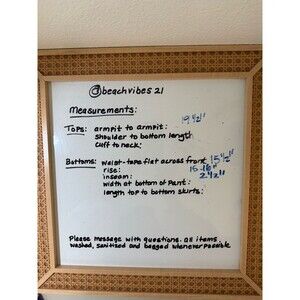 @beachvibes 21
Measurements:
Tops: armpit to armpit: 19 1/2"
shoulder to bottom length
cuff to neck:
Bottoms: waist-tape flat across front 15 1/2"
rise:
inseam: 2 1/2"
width at bottom of pant:
length top to bottom skirts:
Please message with questions. All items
washed, sanitised and bagged whenever possible